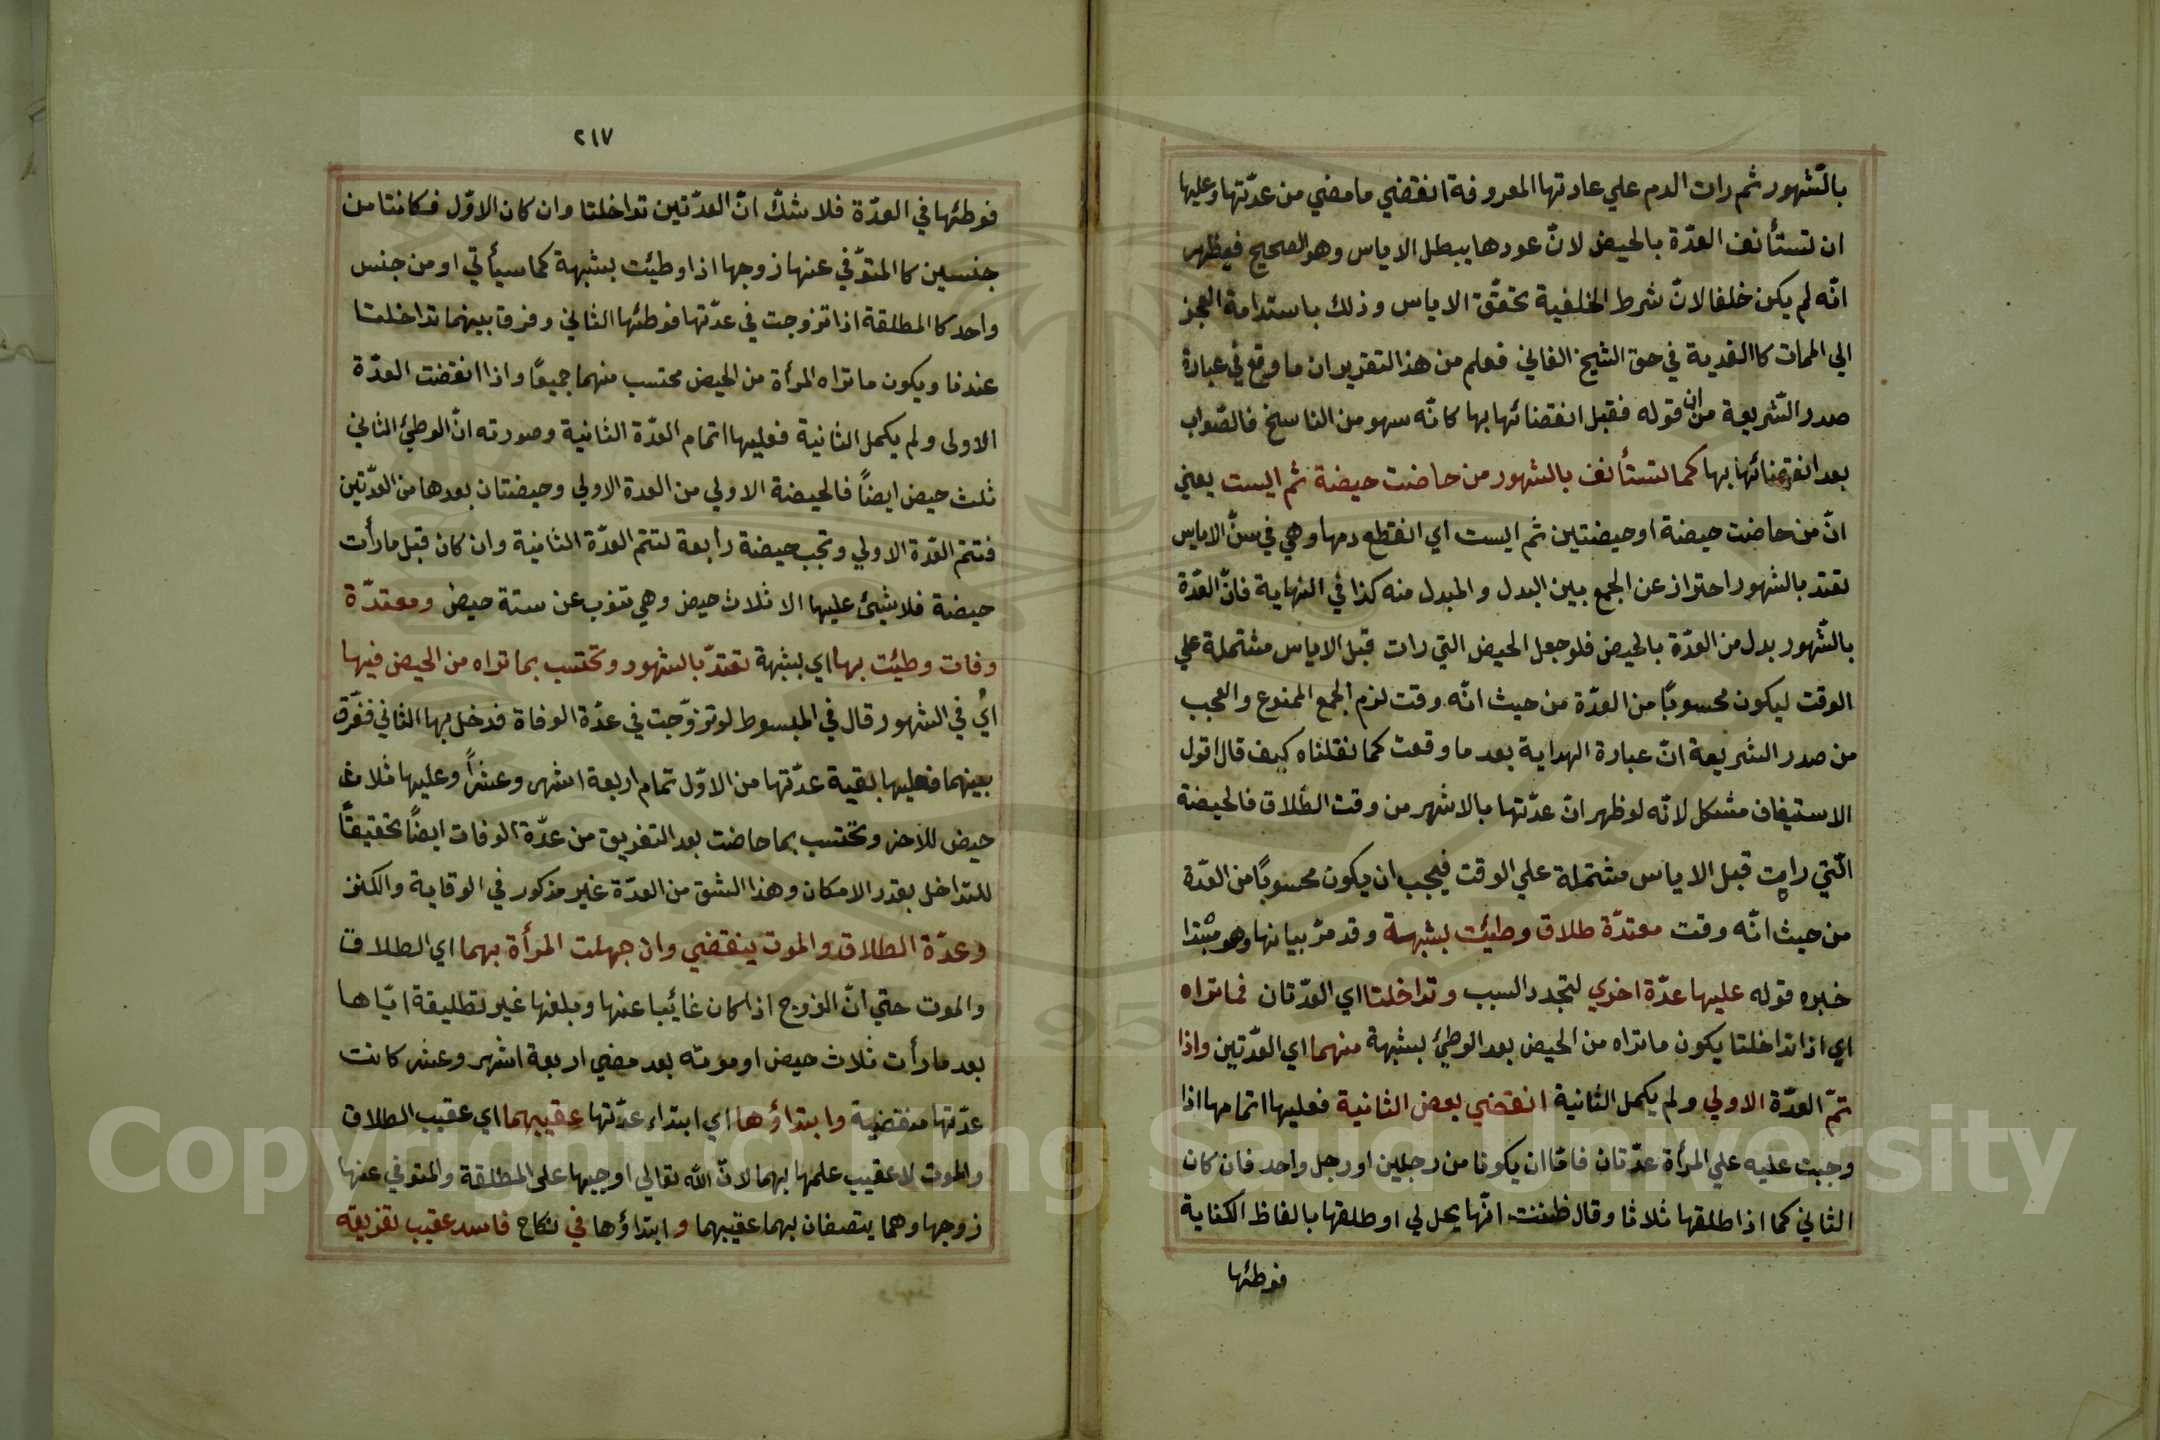 بالشهور ثم رات الدم علي عادتها المعروفة انقضي ما مضي من عدّتها وعليها
ان تستأنف العدّة بالحيض لانّ عودها يبطل الاياس وهو الصحيح فيظهر
انّه لم يكن خلفا لانّ شرط الخلفية تحقّق الاياس وذلك باستدامة العجز
الي الممات كالفدية في حق الشيخ الفاني فعلم من هذا التقرير ان ما وقع في عبارة
صدر الشّريعة من ان قوله فقبل انقضائها بها كانّه سهو من الناسخ فالصّواب
بعد انقضائها بها كما تستأنف بالشهور من حاضت حيضة ثم ايست يعني
انّ من حاضت حيضة او حيضتين ثم ايست اي انقطع دمها وهي في سنّ الاياس
تعتد بالشهور احتراز عن الجمع بين البدل والمبدل منه كذا في النهاية فانّ العدّة
بالشّهور بدل من العدّة بالحيض فلو جعل الحيض التي رات قبل الاياس مشتملة علي
الوقت ليكون محسوبًا من العدّة من حيث انّه وقت لزم الجمع الممنوع والعجب
من صدر الشريعة انّ عبارة الهداية بعد ما وقعت كما نقلناه كيف قال اقول
الاستيناف مشكل لانّه لو ظهر انّ عدّتها بالاشهر من وقت الطّلاق فالحيضة
الّتي رات قبل الاياس مشتملة علي الوقت فيجب ان يكون محسوبًا من العدّة
من حيث انّه وقت معتدّة طلاق وطئت بشبهة وقد مرّ بيانها وهو مبتدا
خبره قوله عليها عدّة اخري لتجدد السبب وتداخلتا اي العدّتان فما تراه
اي اذا تداخلتا يكون ما تراه من الحيض بعد الوطئ بشبهة منهما اي العدّتين واذا
تمّ العدّة الاولي ولم يكمل الثانية انقضي بعض الثانية فعليها اتمامها اذا
وجبت عليه علي المرأة عدّتان فامّا ان يكونا من رجلين او رجل واحد فان كان
الثاني كما اذا طلقها ثلاثا وقال ظننت انّها يحل لي او طلقها بالفاظ الكناية
فوطئها
٢١٧
فوطئها في العدّة فلا شكّ انّ العدّتين تداخلتا وان كان الاوّل فكانتا من
جنسين كالمتوّفي عنها زوجها اذا وطئت بشبهة كما سيأتي او من جنس
واحد كالمطلقة اذا تزوجت في عدّتها فوطئها الثاني وفرق بينهما تداخلتا
عندنا ويكون ما تراه المرأة من الحيض محتسب منهما جميعًا واذا انقضت العدّة
الاولى ولم يكمل الثانية فعليها اتمام العدّة الثانية وصورته انّ الوطئ الثاني
ثلث حيض ايضًا فالحيضة الاولي من العدة الاولي وحيضتان بعدها من العدّتين
فتتم العدّة الاولي وتجب حيضة رابعة لتتم العدّة الثانية وان كان قبل ما رأت
حيضة فلا شئ عليها الا ثلاث حيض وهي تنوب عن ستة حيض ومعتدّة
وفات وطئت بها اي بشبهة تعتدّ بالشهور وتحتسب بما تراه من الحيض فيها
اي في الشهور قال في المبسوط لو تزوّجت في عدّة الوفاة فدخل بها الثاني ففرّق
بينهما فعليها بقية عدّتها من الاوّل تمام اربعة اشهر وعشرًا وعليها ثلاث
حيض للاخر وتحتسب بما حاضت بعد التفريق من عدّة الوفات ايضًا تحقيقًا
للتداخل بقدر الامكان وهذا الشق من العدّة غير مذكور في الوقاية والكنز
وعدّة الطلاق والموت ينقضي وان جهلت المرأة بهما اي الطلاق
والموت حتي انّ الزوج اذا كان غائبا عنها وبلغها خبر تطليقة ايّاها
بعد ما رأت ثلاث حيض او موته بعد مضي اربعة اشهر وعشر كانت
عدّتها منقضية وابتداؤها اي ابتداء عدّتها عقيبهما اي عقيب الطلاق
والموت لا عقيب علمها بهما لانّ الله تعالي اوجبها على المطلقة والمتوفي عنها
زوجها وهما يتصفان بهما عقيبهما وابتداؤها في نكاح فاسد عقيب تفريقه
Copyright © King Saud University